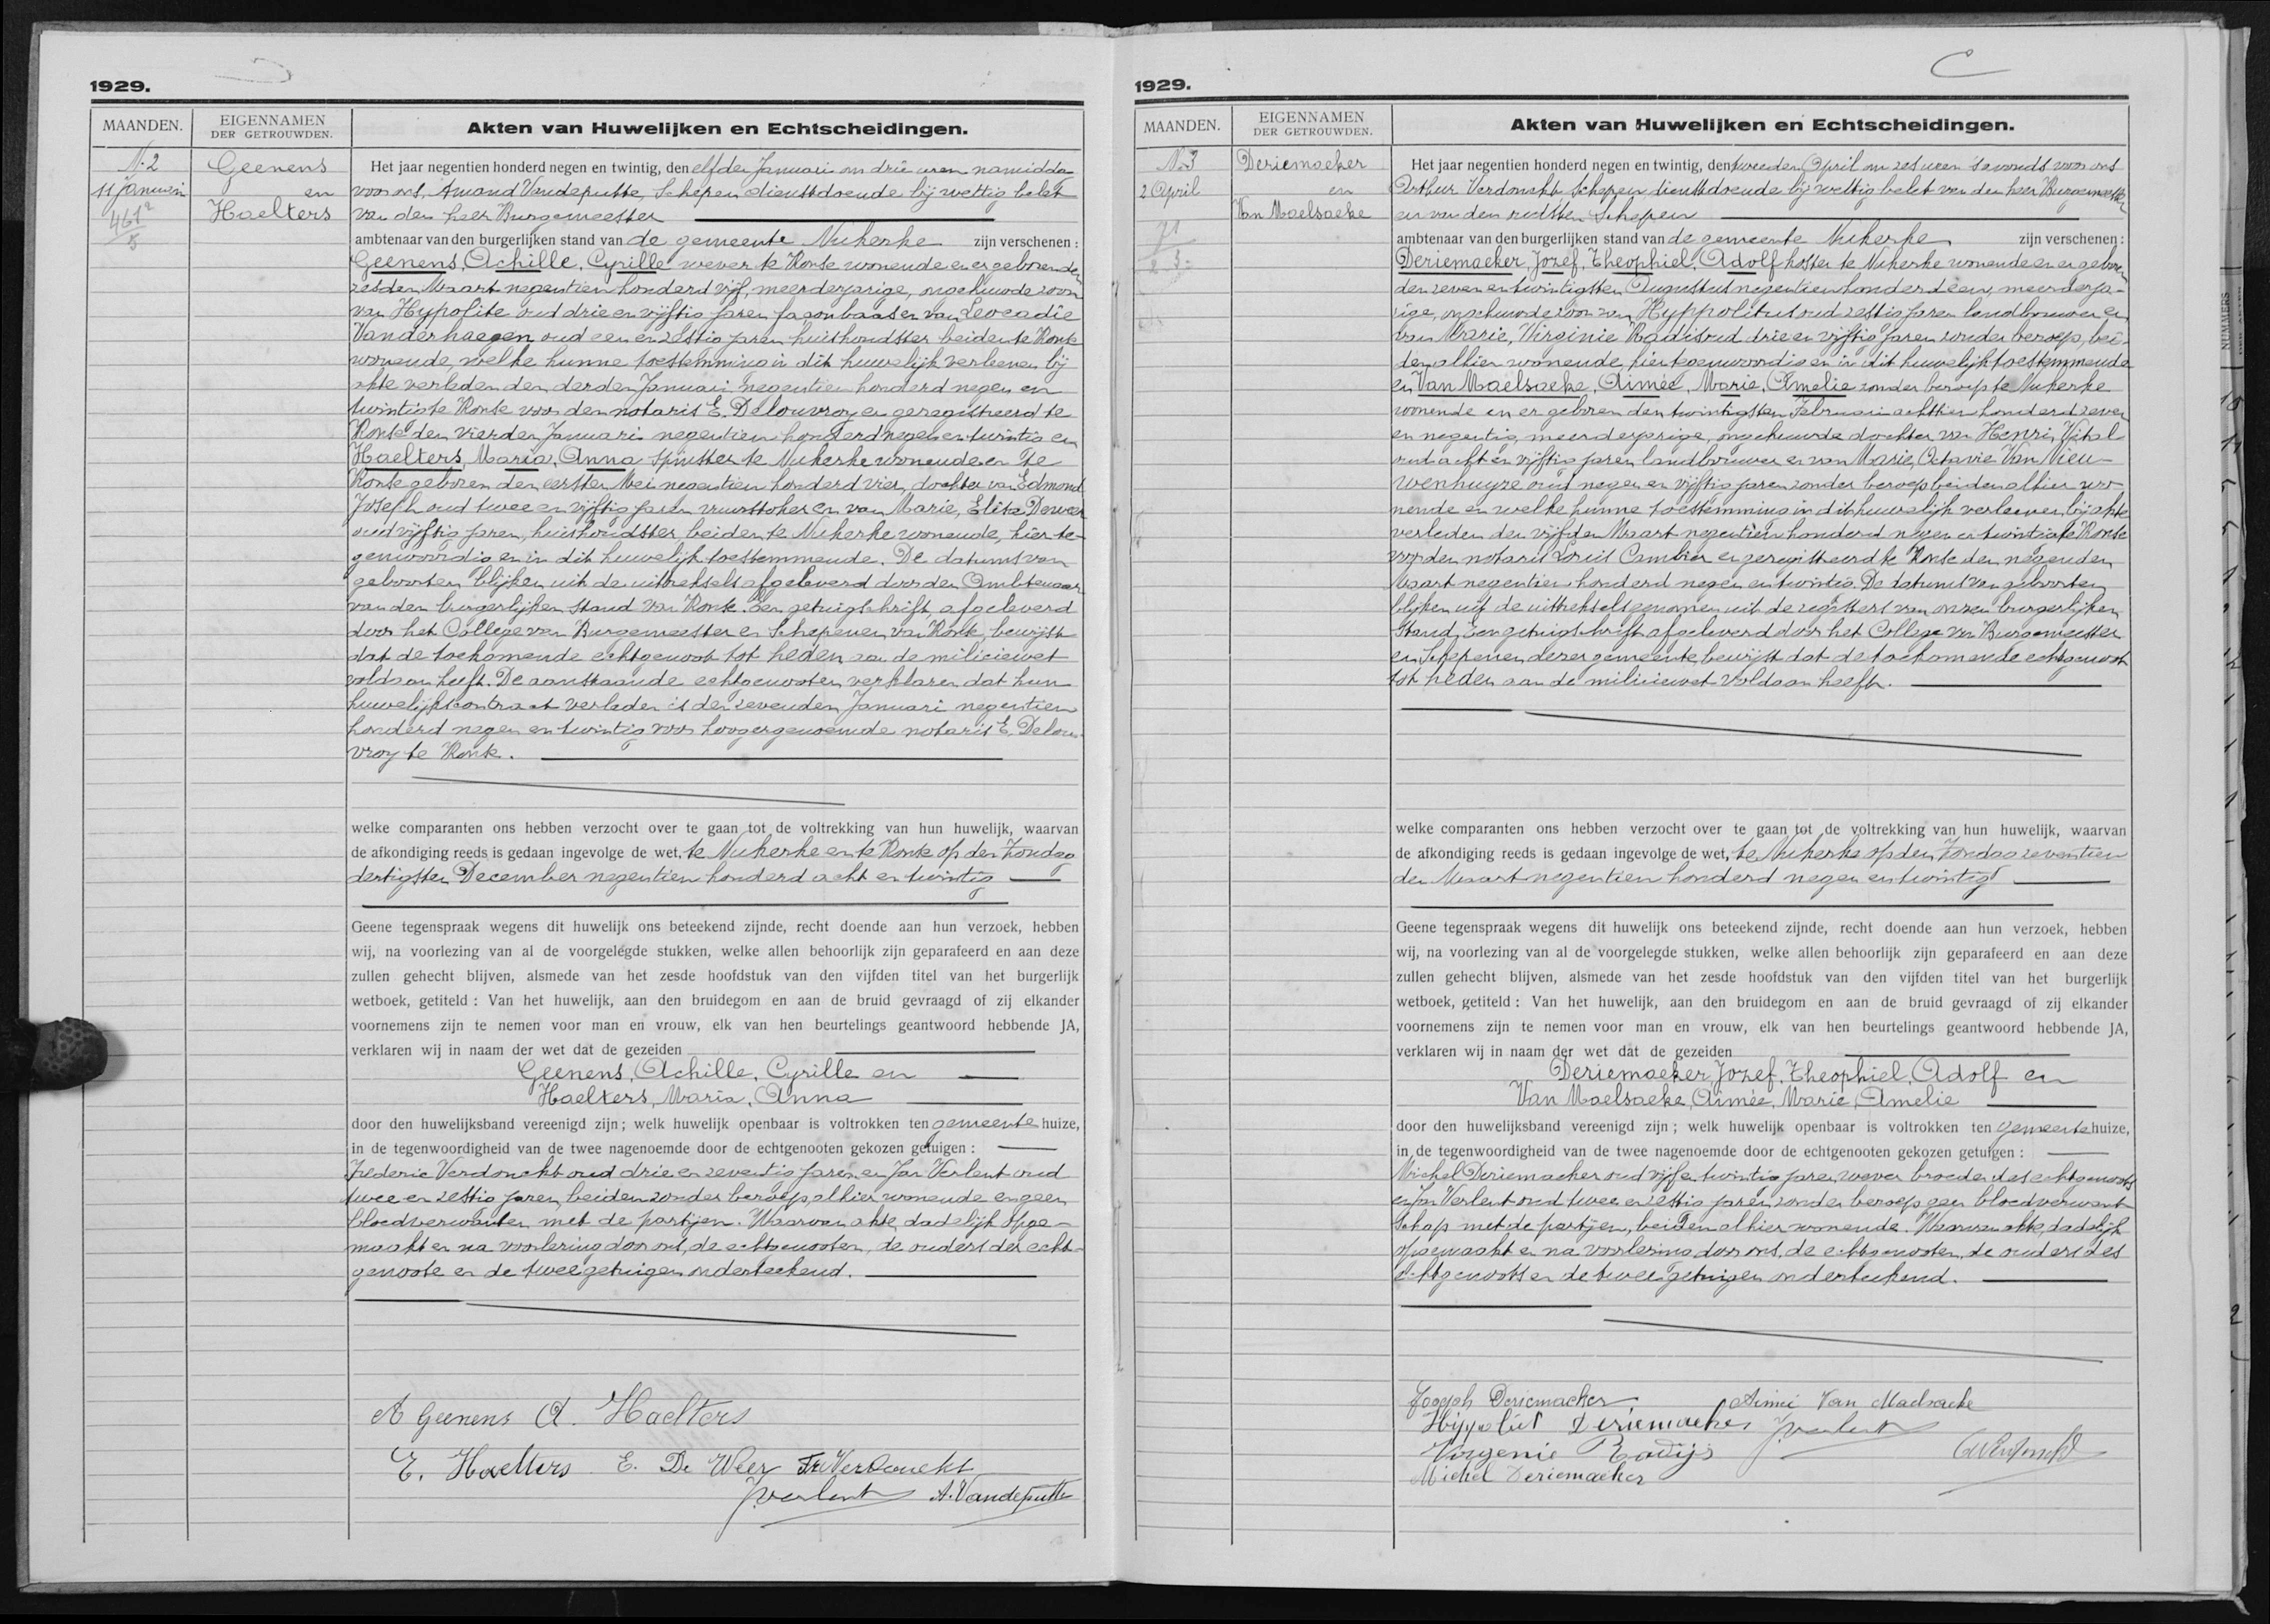 1929.
MAANDEN.
EIGENNAMEN
DER GETROUWDEN.
Akten van Huwelijken en Echtscheidingen.
N. 2
11 Januari
461²
5
Geenens
en
Haelters
Het jaar negentien honderd negen en twintig, den elfden Januari om drie uren namiddag
voor ons, Amand Vandeputte, Schepen dienstdoende bij wettig belet
van den heer Burgemeester
ambtenaar van den burgerlijken stand van de gemeente Nukerke zijn verschenen :
Geenens, Achille, Cyrille wever te Ronse wonende en er geboren den
zesden Maart negentien honderd vijf, meerderjarige, ongehuwde zoon
van Hypolite oud drie en vijftig jaren façonbaas en van Leocadie
Vanderhaegen oud een en zestig jaren huishoudster beiden te Ronse
wonende, welke hunne toestemming in dit huwelijk verleenen bij
akte verleden den derden Januari negentien honderd negen en
twintig te Ronse voor den notaris E. Delouvroy en geregistreerd te
Ronse den vierden Januari negentien honderd negen en twintig en
Haelters, Maria, Anna spinster te Nukerke wonende en te
Ronse geboren den eersten Mei negentien honderd vier, dochter van Edmond
Joseph oud twee en vijftig jaren vuurstoker en van Marie, Elisa Deweer
oud vijftig jaren, huishoudster, beiden te Nukerke wonende, hier te-
genwoordig en in dit huwelijk toestemmende. De datums van
geboorten blijken uit de uittreksels afgeleverd door den Ambtenaar
van den burgerlijken stand van Ronse. Een getuigschrift, afgeleverd
door het College van Burgemeester en Schepenen van Ronse, bewijst
dat de toekomende echtgenoot tot heden aan de miliciewet
voldaan heeft. De aanstaande echtgenooten verklaren dat hun
huwelijkscontract verleden is den zevenden Januari negentien
honderd negen en twintig voor hoogergenoemde notaris E. Delou-
vroy te Ronse.
welke comparanten ons hebben verzocht over te gaan tot de voltrekking van hun huwelijk, waarvan
de afkondiging reeds is gedaan ingevolge de wet, te Nukerke en te Ronse op den Zondag
dertigsten December negentien honderd acht en twintig
Geene tegenspraak wegens dit huwelijk ons beteekend zijnde, recht doende aan hun verzoek, hebben
wij, na voorlezing van al de voorgelegde stukken, welke allen behoorlijk zijn geparafeerd en aan deze
zullen gehecht blijven, alsmede van het zesde hoofdstuk van den vijfden titel van het burgerlijk
wetboek, getiteld : Van het huwelijk, aan den bruidegom en aan de bruid gevraagd of zij elkander
voornemens zijn te nemen voor man en vrouw, elk van hen beurtelings geantwoord hebbende JA,
verklaren wij in naam der wet dat de gezeiden
Geenens, Achille, Cyrille en
Haelters, Maria, Anna
door den huwelijksband vereenigd zijn ; welk huwelijk openbaar is voltrokken ten gemeente huize,
in de tegenwoordigheid van de twee nagenoemde door de echtgenooten gekozen getuigen :
Frederic Verdonckt oud drie en zeventig jaren en Jan Verlent oud
twee en zestig jaren, beiden zonder beroep, alhier wonende en geen
bloedverwanten met de partijen. Waarvan akte, dadelijk opge-
maakt en na voorlezing door ons, de echtgenooten, de ouders der echt-
genoote en de twee getuigen onderteekend.
A Geenens A. Haelters
E. Haelters E. De Weer Fr. Verdonckt
J Verlent A. Vandeputte
1929.
MAANDEN.
EIGENNAMEN
DER GETROUWDEN.
Akten van Huwelijken en Echtscheidingen.
N. 3
2 April
71
Deriemaeker
en
Van Maelsaeke
Het jaar negentien honderd negen en twintig, den tweeden April om zes uren 's avonds voor ons
Arthur Verdonckt Schepen dienstdoende bij wettig belet van den heer Burgemeester
en van den eersten Schepen
ambtenaar van den burgerlijken stand van de gemeente Nukerke zijn verschenen :
Deriemaeker, Jozef, Theophiel, Adolf koster te Nukerke wonende en er geboren
den zeven en twintigsten Augustus negentien honderd een, meerderja-
rige, ongehuwde zoon van Hyppolitus oud zestig jaren landbouwer en
van Marie, Virginie Radijs oud drie en vijftig jaren zonder beroep, bei-
den alhier wonende, hier tegenwoordig en in dit huwelijk toestemmende
en Van Maelsaeke, Aimée, Marie, Amelie zonder beroep te Nukerke
wonende en er geboren den twintigsten Februari achttien honderd zeven
en negentig, meerderjarige, ongehuwde dochter van Henri, Vital
oud acht en vijftig jaren, landbouwer en van Marie, Octavie Van Nieu-
wenhuyze oud negen en vijftig jaren zonder beroep beiden alhier wo-
nende en welke hunne toestemming in dit huwelijk verleenen bij akte
verleden den vijfden Maart negentien honderd negen en twintig te Ronse
voor den notaris Louis Cambier en geregistreerd te Ronse den negenden
Maart negentien honderd negen en twintig. De datums van geboorten
blijken uit de uittreksels genomen uit de registers van onzen burgerlijken
stand. Een getuigschrift afgeleverd door het College van Burgemeester
en Schepenen dezer gemeente bewijst dat de toekomende echtgenoot
tot heden aan de miliciewet voldaan heeft.
welke comparanten ons hebben verzocht over te gaan tot de voltrekking van hun huwelijk, waarvan
de afkondiging reeds is gedaan ingevolge de wet, te Nukerke op den Zondag zeventien
den Maart negentien honderd negen en twintig
Geene tegenspraak wegens dit huwelijk ons beteekend zijnde, recht doende aan hun verzoek, hebben
wij, na voorlezing van al de voorgelegde stukken, welke allen behoorlijk zijn geparafeerd en aan deze
zullen gehecht blijven, alsmede van het zesde hoofdstuk van den vijfden titel van het burgerlijk
wetboek, getiteld : Van het huwelijk, aan den bruidegom en aan de bruid gevraagd of zij elkander
voornemens zijn te nemen voor man en vrouw, elk van hen beurtelings geantwoord hebbende JA,
verklaren wij in naam der wet dat de gezeiden
Deriemaeker, Jozef, Theophiel, Adolf en
Van Maelsaeke, Aimée, Marie, Amelie
door den huwelijksband vereenigd zijn ; welk huwelijk openbaar is voltrokken ten gemeente huize,
in de tegenwoordigheid van de twee nagenoemde door de echtgenooten gekozen getuigen :
Michel Deriemaeker oud vijf en twintig jaren, wever broeder des echtgenoots
en Jan Verlent oud twee en zestig jaren zonder beroep geen bloedverwant-
schap met de partijen, beiden alhier wonende. Waarvan akte, dadelijk
opgemaakt en na voorlezing door ons, de echtgenooten, de ouders des
echtgenoots en de twee getuigen onderteekend.
Joseph Deriemaeker Aimée Van Maelsaeke
Hippoliet Deriemaeker J Verlent
Virgenie Radijs A Verdonckt
Michel Deriemaeker
NUMMERS